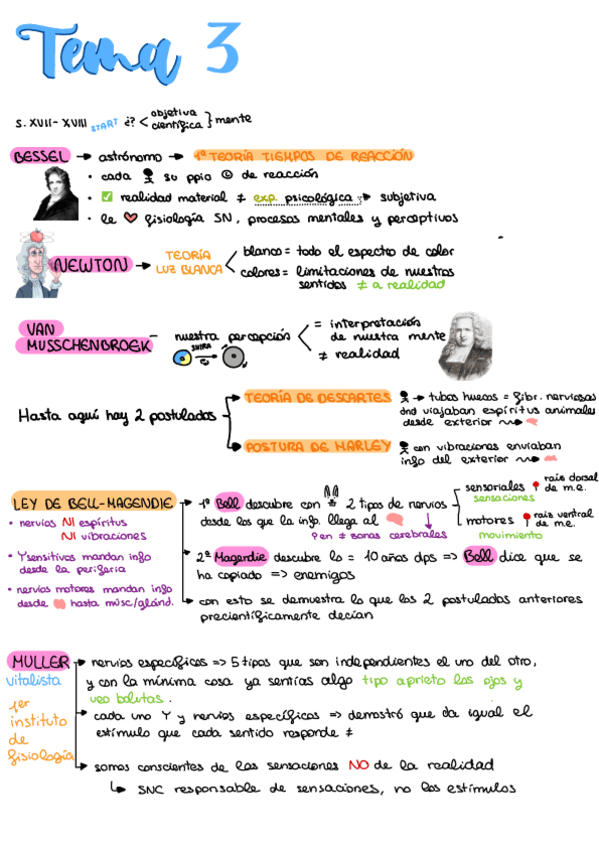 Tema 3
S. XVII - XVIII START ¿? < objetiva científica } mente
BESSEL → astrónomo → 1ª TEORÍA TIEMPOS DE REACCIÓN
• cada su ppio de reacción
• ✅ realidad material ≠ exp. psicológica → subjetiva
• le ❤ fisiología SN, procesos mentales y perceptivos
NEWTON → TEORÍA LUZ BLANCA
blanco = todo el espectro de color
colores = limitaciones de nuestros
sentidos ≠ a realidad
VAN
MUSSCHENBROEK - nuestra percepción
= interpretación
de nuestra mente
≠ realidad
Hasta aquí hay 2 postulados
TEORÍA DE DESCARTES → tubos huecos = fibr. nerviosas
dnd viajaban espíritus animales
desde exterior
POSTURA DE HARLEY con vibraciones enviaban
info del exterior
LEY DE BELL-MAGENDIE
• nervios NI espíritus
NI vibraciones
• Ysensitivos mandan info
desde la periferia
• nervios motores mandan info
desde hasta músc/gland.
→ 1º Bell descubre con 2 tipos de nervios
desde los que la info. llega al
a en ≠ zonas cerebrales
sensoriales raíz dorsal
de m.e.
sensaciones
motores raíz ventral
de m.e.
movimiento
→ 2º Magendie descubre lo = 10 años dps => Bell dice que se
ha copiado => enemigos
→ con esto se demuestra lo que los 2 postulados anteriores
precientíficamente decían
MULLER
vitalista
1er
instituto
de
fisiología
→ nervios específicos => 5 tipos que son independientes el uno del otro,
y con la mínima cosa ya sentías algo tipo aprieto los ojos y
veo bolitas.
→ cada uno Y y nervios específicos => demostró que da igual el
estímulo que cada sentido responde ≠
→ somos conscientes de las sensaciones NO de la realidad
↳ SNC responsable de sensaciones, no los estímulos